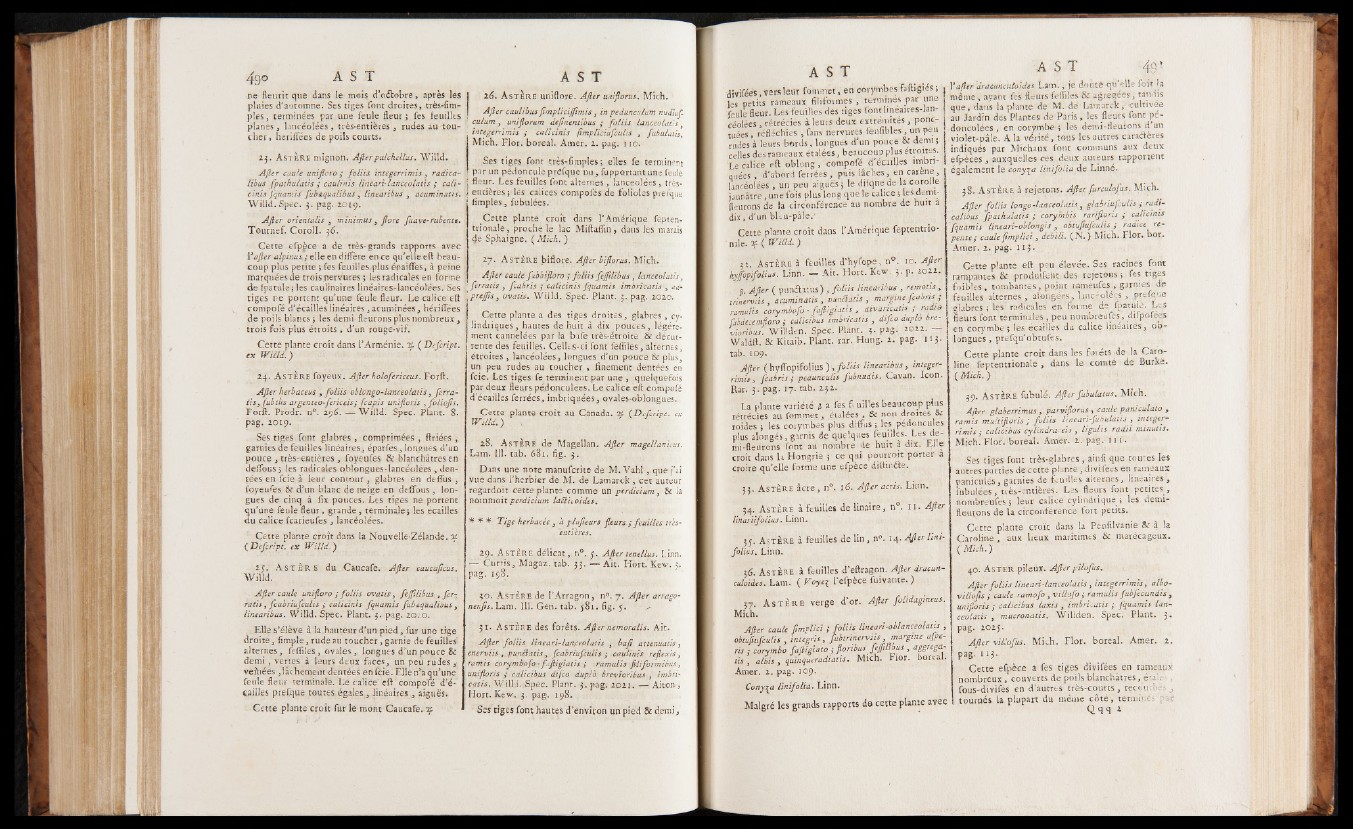 490 A S T
ne fleurit que dans le mois d'octobre, après les
pluies d'automne. Ses tiges sont droites, très-sim-
ples, terminées par une seule fleur ; ses feuilles
planes, lancéolées, très-entières, rudes au tou-
cher, hérissées de poils courts.
23. ASTÈRE mignon. Aster pulchellus. Willd.
Aster caule unifloro ; foliis integerrimis, radica-
libus spathulatis ; caulinis lineari-lanceolatis ; cali-
cinis squamis subaequalibus, linearibus, acuminatis.
Willd. Spec. 3. pag. 2019.
Aster orientalis, minimus, flore suave-rubente.
Tournef. Coroll. 36.
Cette espèce a de très-grands rapports avec
l'aster alpinus ; elle en diffère en ce qu'elle est beau-
coup plus petite ; ses feuilles plus épaisses, à peine
marquées de trois nervures ; les radicales en forme
de spatule ; les caulinaires linéaires-lancéolées. Ses
tiges ne portent qu'une seule fleur. Le calice est
composé d'écailles linéaires, acuminées, hérissées
de poils blancs ; les demi-fleurons plus nombreux,
trois fois plus étroits, d'un rouge-vif.
Cette plante croît dans l'Arménie. ♃ (Descript.
ex Willd.)
24. ASTÈRE soyeux. Aster holosericeus. Forst.
Aster herbaceus, foliis oblongo-lanceolatis, serra-
tis, subtùs argenteo-sericeis ; scapis unifloris, foliosis.
Forst. Prodr. n°. 296. — Willd. Spec. Plant. 8.
pag. 2019.
Ses tiges sont glabres, comprimées, striées,
garnies de feuilles linéaires, éparses, longues d'un
pouce, très-entières, soyeuses & blanchâtres en
dessous ; les radicales oblongues-lancéolées, den-
tées en scie à leur contour, glabres en dessus,
soyeuses & d'un blanc de neige en dessous, lon-
gues de cinq à six pouces. Les tiges ne portent
qu'une seule fleur, grande, terminale ; les écailles
du calice scarieuses, lancéolées.
Cette plante croît dans la Nouvelle-Zélande. ♃
(Descript. ex Willd.)
25. ASTÈRE du Caucase. Aster caucasicus.
Willd.
Aster caule unifloro ; foliis ovatis, sessilibus, ser-
ratis, scabriusculis ; calicinis squamis subaequalibus,
linearibus. Willd. Spec. Plant. 3. pag. 2020.
Elle s'élève à la hauteur d'un pied, sur une tige
droite, simple, rude au toucher, garnie de feuilles
alternes, sessiles, ovales, longues d'un pouce &
demi, vertes à leurs deux faces, un peu rudes,
veinées, lâchement dentées en scie. Elle n'a qu'une
seule fleur terminale. Le calice est composé d'é-
cailles presque toutes égales, linéaires, aiguës.
Cette plante croît sur le mont Caucase. ♃
A S T
26. ASTÈRE uniflore. Aster uniflorus. Mich.
Aster caulibus simplicissimis, in pedunculum nudius-
culum, uniflorum desinentibus ; foliis lanceolatis,
integerrimis ; calicinis simpliciusculis, subulatis.
Mich. Flor. boreal. Amer. 2. pag. 110.
Ses tiges sont très-simples ; elles se terminent
par un pédoncule presque nu, supportant une seule
fleur. Les feuilles sont alternes, lancéolées, très-
entières ; les calices composés de folioles presque
simples, subulées.
Cette plante croît dans l'Amérique septen-
trionale, proche le lac Mistassin, dans les marais
de Sphaigne. (Mich.)
27. ASTÈRE biflore. Aster biflorus. Mich.
Aster caule subbifloro ; foliis sessilibus, lanceolatis,
serratis, scabris ; calicinis squamis imbricatis, ad-
pressis, ovatis. Willd. Spec. Plant. 3. pag. 2020.
Cette plante a des tiges droites, glabres, cy-
lindriques, hautes de huit à dix pouces, légère-
ment cannelées par la base très-étroite & décur-
rente des feuilles. Celles-ci sont sessiles, alternes,
étroites, lancéolées, longues d'un pouce & plus,
un peu rudes au toucher, finement dentées en
scie. Les tiges se terminent par une, quelquefois
par deux fleurs pédonculées. Le calice est composé
d'écailles serrées, imbriquées, ovales-oblongues.
Cette plante croît au Canada. ♃ (Descript. ex
Willd.)
28. ASTÈRE de Magellan. Aster magellanicus.
Lam. Ill. tab. 681. fig. 3.
Dans une note manuscrite de M. Vahl, que j'ai
vue dans l'herbier de M. de Lamarck, cet auteur
regardoit cette plante comme un perdicium, & la
nommoit perdicium lactucoides.
* * * Tige herbacée, à plusieurs fleurs ; feuilles très-
entières.
29. ASTÈRE délicat, n°. 5. Aster tenellus. Linn.
— Curtis, Magaz. tab. 33. — Ait. Hort. Kew. 3.
pag. 198.
30. ASTÈRE de l'Arragon, n°. 7. Aster arrago-
nensis. Lam. Ill. Gén. tab. 581. fig. 5.
31. ASTÈRE des forêts. Aster nemoralis. Ait.
Aster foliis lineari-lanceolatis, basi attenuatis,
enerviis, punctatis, scabriusculis ; caulinis reflexis,
ramis corymboso-fastigiatis ; ramulis filiformibus,
unifloris ; calicibus disco duplò brevioribus, imbri-
catis. Willd. Spec. Plant. 3. pag. 2021. — Aiton,
Hort. Kew. 3. pag. 198.
Ses tiges sont hautes d'environ un pied & demi,
A S T
divisées, vers leur sommet, en corymbes fastigiés ;
les petits rameaux filiformes, terminés par une
seule fleur. Les feuilles des tiges sont linéaires-lan-
céolées, rétrécies à leurs deux extrémités, ponc-
tuées, réfléchies, sans nervures sensibles, un peu
rudes à leurs bords, longues d'un pouce & demi ;
celles des rameaux étalées, beaucoup plus étroites.
Le calice est oblong, composé d'écailles imbri-
quées, d'abord serrées, puis lâches, en carène,
lancéolées, un peu aiguës ; le disque de la corolle
jaunâtre, une fois plus long que le calice ; les demi-
fleurons de la circonférence au nombre de huit à
dix, d'un bleu-pâle.
Cette plante croît dans l'Amérique septentrio-
nale. ♃ (Willd.)
32. ASTÈRE à feuilles d'hysope, n°. 10. Aster
hyssopifolius. Linn. — Ait. Hort. Kew. 3. p. 2022.
β. Aster (punctatus), foliis linearibus, remotis,
trinerviis, acuminatis, punctatis, margine scabris ;
ramulis corymboso-fastigiatis, divaricatis ; radio
subdecemfloro ; calicibus imbricatis, disco duplò bre-
vioribus. Willden. Spec. Plant. 3. pag. 2022. —
Waldst. & Kitaib. Plant. rar. Hung. 2. pag. 113.
tab. 109.
Aster (hyssopifolius), foliis linearibus, integer-
rimis, scabris ; pedunculis subnudis. Cavan. Icon.
Rar. 3. pag. 17. tab. 232.
La plante variété β a ses feuilles beaucoup plus
rétrécies au sommet, étalées, & non droites &
roides ; les corymbes plus diffus ; les pédoncules
plus alongés, garnis de quelques feuilles. Les de-
mi-fleurons sont au nombre de huit à dix. Elle
croît dans la Hongrie ; ce qui pourroit porter à
croire qu'elle forme une espèce distincte.
33. ASTÈRE âcre, n°. 16. Aster acris. Linn.
34. ASTÈRE à feuilles de linaire, n°. 11. Aster
linariifolius. Linn.
35. ASTÈRE à feuilles de lin, n°. 14. Aster lini-
folius. Linn.
36. ASTÈRE à feuilles d'estragon. Aster dracun-
culoides. Lam. (Voyez l'espèce suivante.)
37. ASTÈRE verge d'or. Aster solidagineus.
Mich.
Aster caule simplici ; foliis lineari-oblanceolatis,
obtusiusculis, integris, subtrinerviis, margine aspe-
ris ; corymbo fastigiato ; floribus sessilibus, aggrega-
tis, albis, quinqueradiatis. Mich. Flor. boreal.
Amer. 2. pag. 109.
Conyza linifolia. Linn.
Malgré les grands rapports de cette plante avec
A S T 491
l'aster dracunculoides Lam., je doute qu'elle soit la
même, ayant ses fleurs sessiles & agrégées, tandis
que, dans la plante de M. de Lamarck, cultivée
au Jardin des Plantes de Paris, les fleurs sont pé-
donculées, en corymbe ; les demi-fleurons d'un
violet-pâle. A la vérité, tous les autres caractères
indiqués par Michaux sont communs aux deux
espèces, auxquelles ces deux auteurs rapportent
également le conyza linifolia de Linné.
38. ASTÈRE à rejetons. Aster surculosus. Mich.
Aster foliis longo-lanceolatis, glabriusculis ; radi-
calibus spathulatis ; corymbis rarifloris ; calicinis
squamis lineari-oblongis, obtusiusculis ; radice re-
pente ; caule simplici, debili. (N.) Mich. Flor. bor.
Amer. 2. pag. 113.
Cette plante est peu élevée. Ses racines sont
rampantes & produisent des rejetons ; ses tiges
foibles, tombantes, point rameuses, garnies de
feuilles alternes, alongées, lancéolées, presque
glabres ; les radicales en forme de spatule. Les
fleurs sont terminales, peu nombreuses, disposées
en corymbe ; les écailles du calice linéaires, ob-
longues, presqu'obtuses.
Cette plante croît dans les forêts de la Caro-
line septentrionale, dans le comté de Burke.
(Mich.)
39. ASTÈRE subulé. Aster subulatus. Mich.
Aster glaberrimus, parviflorus, caule paniculato,
ramis multifloris ; foliis lineari-subulatis, integer-
rimis ; calicibus cylindraceis, ligulis radii minutis.
Mich. Flor. boreal. Amer. 2. pag. 111.
Ses tiges sont très-glabres, ainsi que toutes les
autres parties de cette plante, divisées en rameaux
paniculés, garnis de feuilles alternes, linéaires,
subulées, très-entières. Les fleurs sont petites,
nombreuses ; leur calice cylindrique ; les demi-
fleurons de la circonférence fort petits.
Cette plante croît dans la Pensilvanie & à la
Caroline, aux lieux maritimes & marécageux.
(Mich.)
40. ASTER pileux. Aster pilosus.
Aster foliis lineari-lanceolatis, integerrimis, albo-
villosis ; caule ramoso, villoso ; ramulis subsecundis,
unifloris ; calicibus laxis, imbricatis ; squamis lan-
ceolatis, mucronatis. Willden. Spec. Plant. 3.
pag. 2025.
Aster villosus. Mich. Flor. boreal. Amer. 2.
pag. 113.
Cette espèce a ses tiges divisées en rameaux
nombreux, couverts de poils blanchâtres,
sous-divisés en d'autres très-courts,
tournés la plupart du même côté, terminés par
Qqq 2